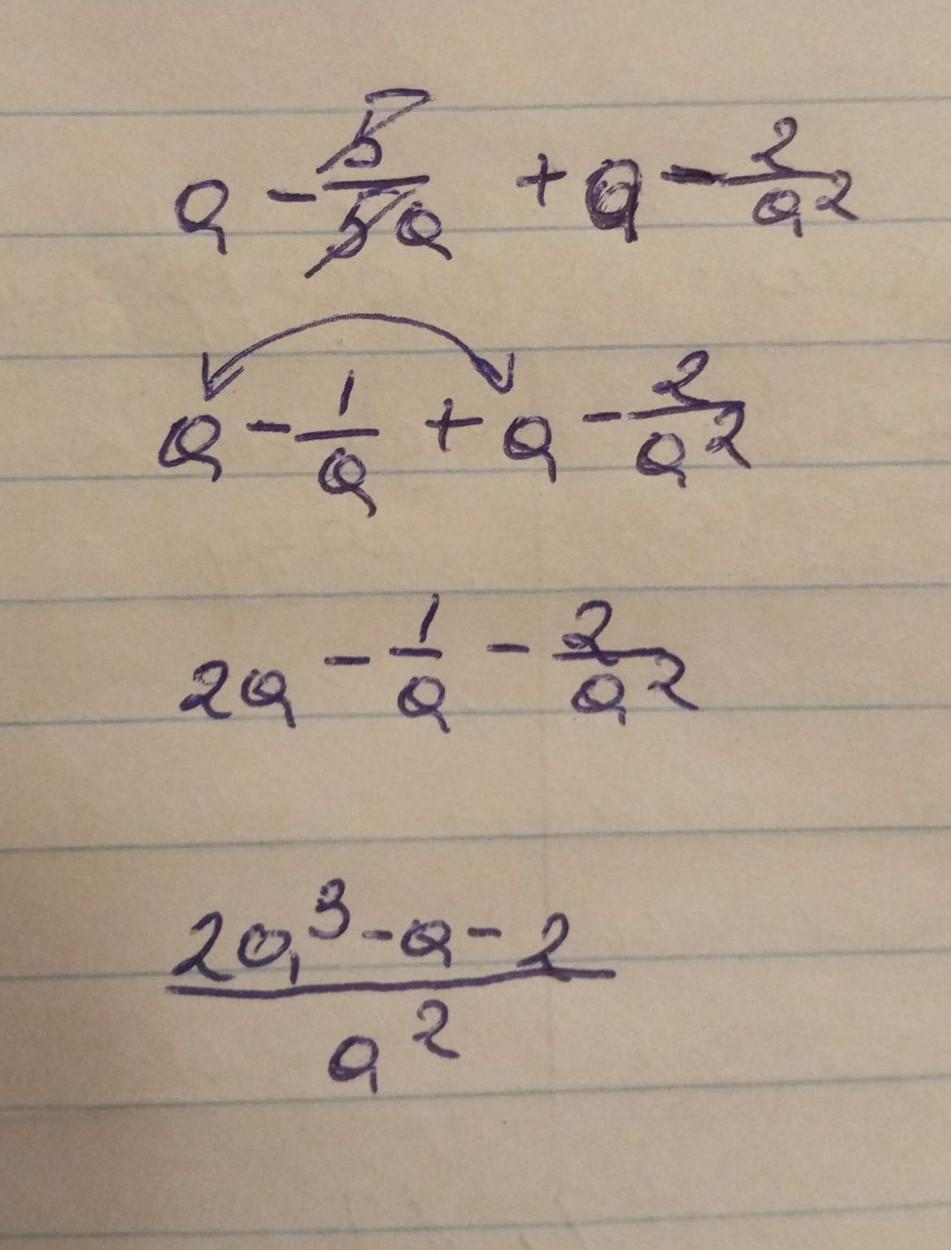 a - 5/5a + a - 2/a²
a - 1/a + a - 2/a²
2a - 1/a - 2/a²
2a³ - a - 2
a²